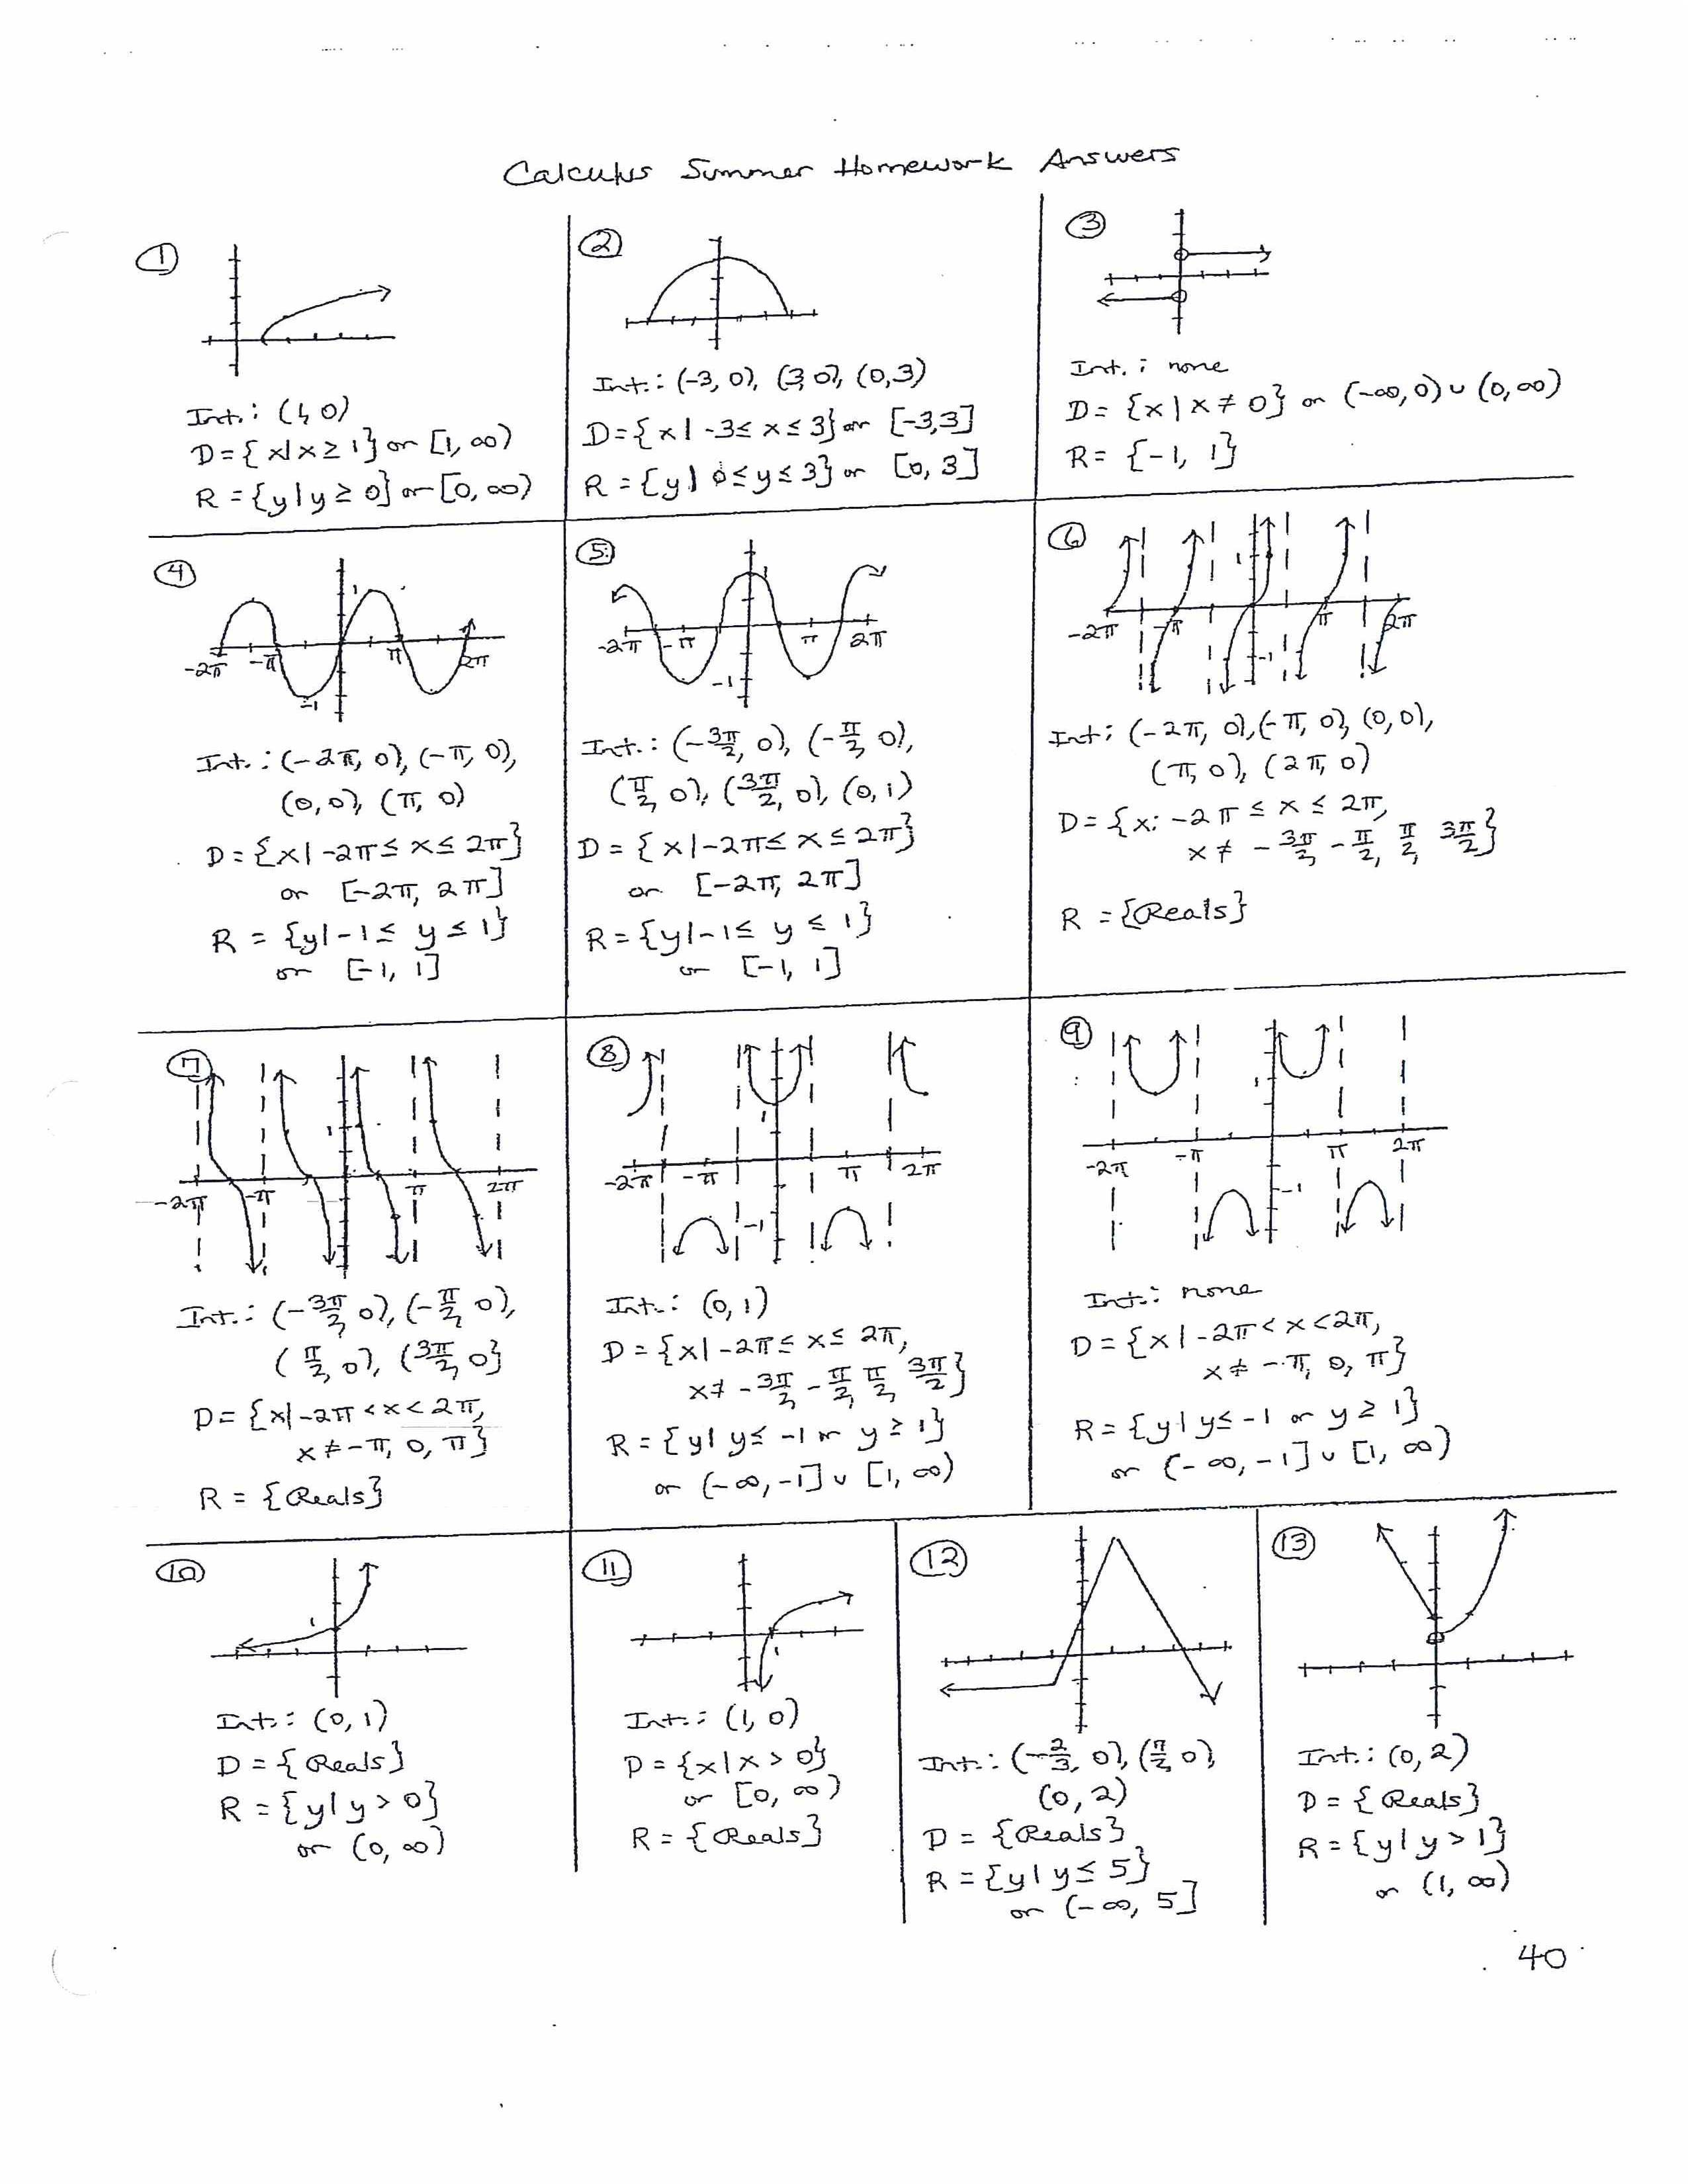 Calculus Summer Homework Answers
①
Int.: (1, 0)
D = {x|x ≥ 1} or [1, ∞)
R = {y|y ≥ 0} or [0, ∞)
②
Int.: (-3, 0), (3, 0), (0, 3)
D = {x| -3 ≤ x ≤ 3} or [-3, 3]
R = {y| 0 ≤ y ≤ 3} or [0, 3]
③
Int.: none
D = {x | x ≠ 0} or (-∞, 0) ∪ (0, ∞)
R = {-1, 1}
④
1
-2π -π π 2π
-1
Int.: (-2π, 0), (-π, 0),
(0, 0), (π, 0)
D = {x| -2π ≤ x ≤ 2π}
or [-2π, 2π]
R = {y| -1 ≤ y ≤ 1}
or [-1, 1]
⑤
1
-2π -π π 2π
-1
Int.: (-3π/2, 0), (-π/2, 0),
(π/2, 0), (3π/2, 0), (0, 1)
D = {x| -2π ≤ x ≤ 2π}
or [-2π, 2π]
R = {y| -1 ≤ y ≤ 1}
or [-1, 1]
⑥
1
-2π -π π 2π
-1
Int: (-2π, 0), (-π, 0), (0, 0),
(π, 0), (2π, 0)
D = {x: -2π ≤ x ≤ 2π,
x ≠ -3π/2, -π/2, π/2, 3π/2}
R = {Reals}
⑦
1
-2π -π π 2π
Int.: (-3π/2, 0), (-π/2, 0),
(π/2, 0), (3π/2, 0}
D = {x| -2π < x < 2π,
x ≠ -π, 0, π}
R = {Reals}
⑧
1
-2π -π π 2π
-1
Int.: (0, 1)
D = {x| -2π ≤ x ≤ 2π,
x ≠ -3π/2, -π/2, π/2, 3π/2}
R = {y| y ≤ -1 or y ≥ 1}
or (-∞, -1] ∪ [1, ∞)
⑨
1
-2π -π π 2π
-1
Int.: none
D = {x| -2π < x < 2π,
x ≠ -π, 0, π}
R = {y| y ≤ -1 or y ≥ 1}
or (-∞, -1] ∪ [1, ∞)
⑩
1
Int.: (0, 1)
D = {Reals}
R = {y| y > 0}
or (0, ∞)
⑪
1
Int.: (1, 0)
D = {x|x > 0}
or [0, ∞)
R = {Reals}
⑫
Int.: (-2/3, 0), (π/2, 0),
(0, 2)
D = {Reals}
R = {y| y ≤ 5}
or (-∞, 5]
⑬
Int.: (0, 2)
D = {Reals}
R = {y| y > 1}
or (1, ∞)
40